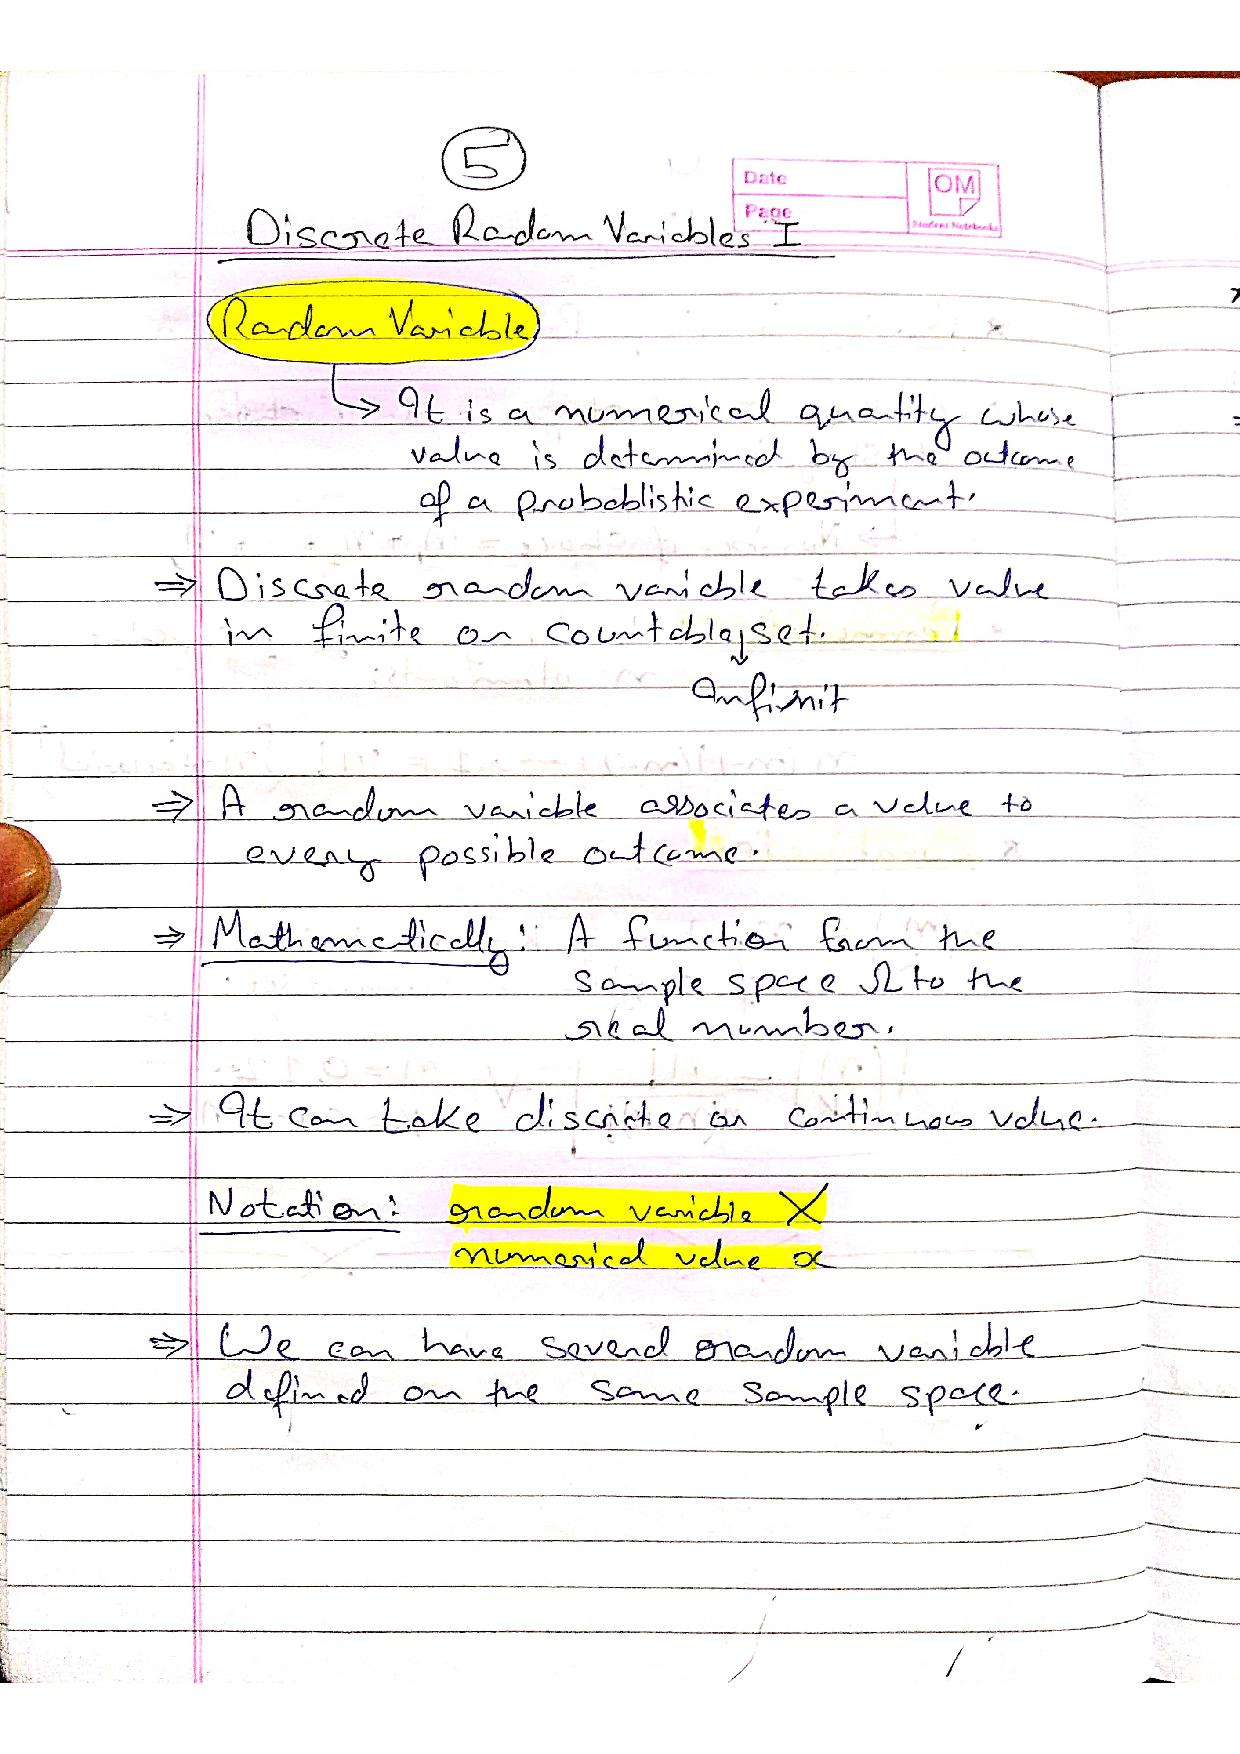 5
Date
OM
Page
Student Notebooks
Discrete Random Variables I
Random Variable
→ It is a numerical quantity whose
value is determined by the outcome
of a probablistic experiment.
⇒ Discrete random variable takes value
in finite or countable set.
↓
Infinit
⇒ A random variable associates a value to
every possible outcome.
⇒ Mathematically: A function from the
sample space Ω to the
real number.
⇒ It can take discrete or continuous value.
Notation: random variable X
numerical value x
⇒ We can have several random variable
defined on the same sample space.